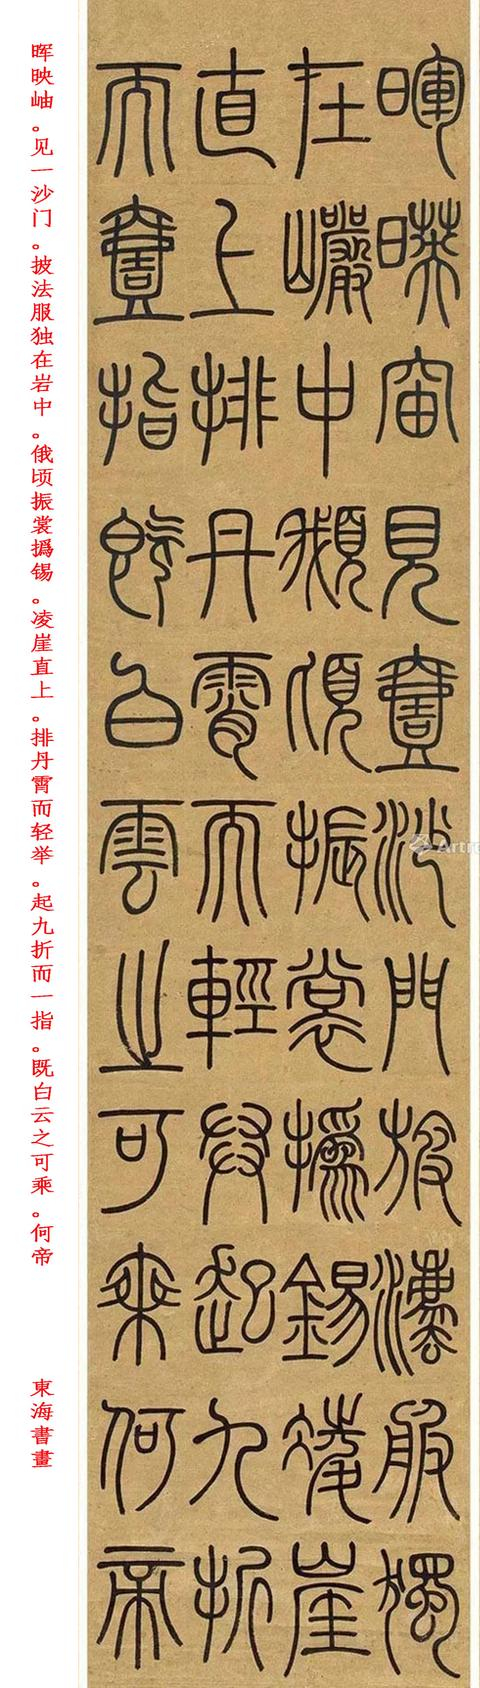 暉映宙見壹沙門披灋服獨
在巖中俄頃振裳撝錫淩崖
直上排丹霄而輕舉起九折
而壹指既白雲之可乘何帝
晖映岫。见一沙门。披法服独在岩中。俄顷振裳撝锡。凌崖直上。排丹霄而轻举。起九折而一指。既白云之可乘。何帝
東海書畫